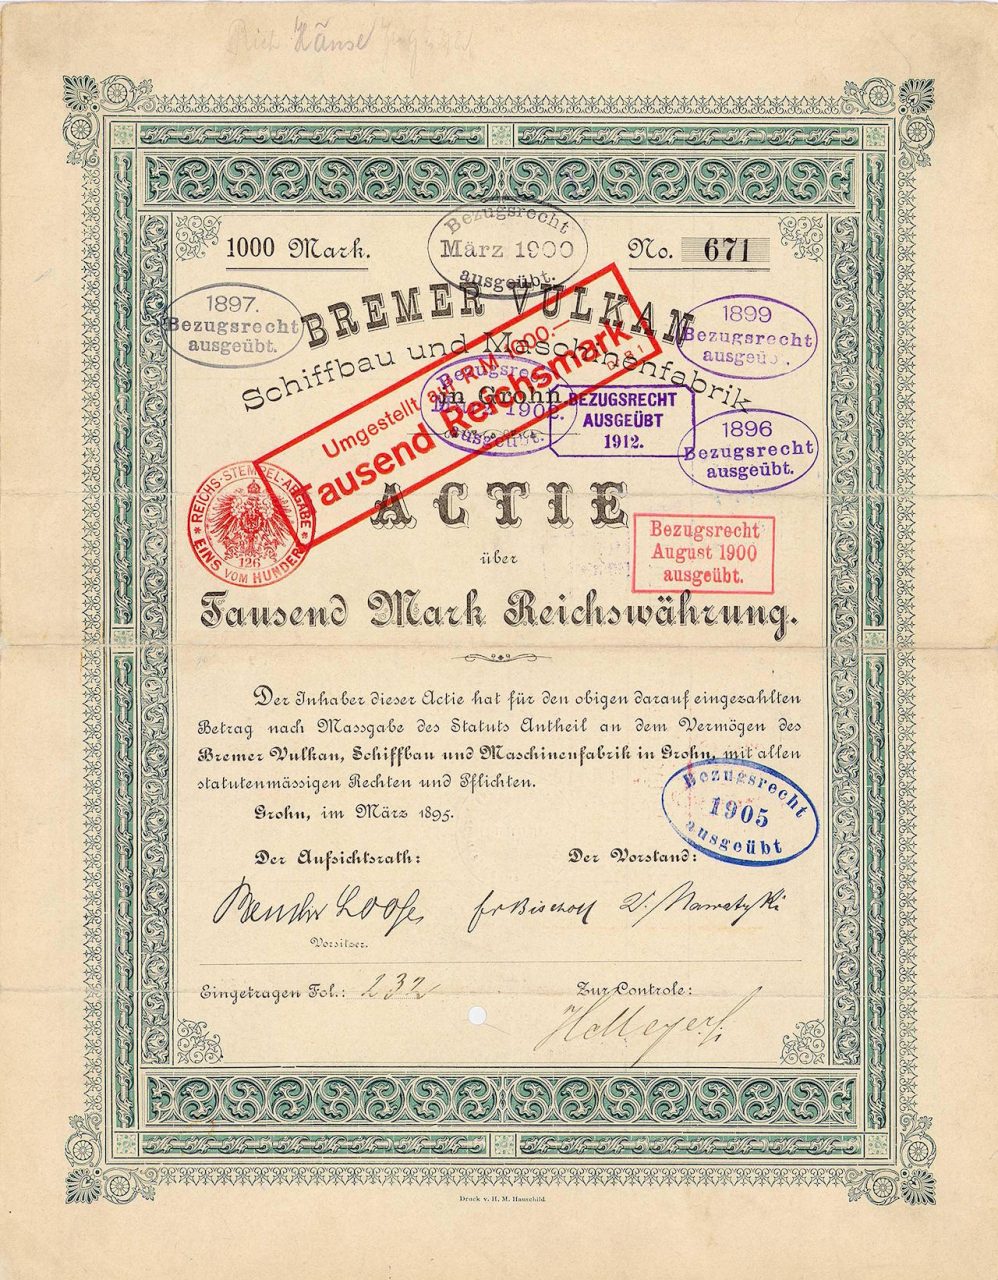 Hänse
Bezugsrecht
März 1900
ausgeübt.
1000 Mark.
No. 671
1897.
Bezugsrecht
ausgeübt.
BREMER VULKAN
1899
Bezugsrecht
ausgeübt.
Schiffbau und Maschinenfabrik
in Grohn.
Umgestellt auf RM 1000.—
Tausend Reichsmark
Bezugsrecht
1902.
ausgeübt.
BEZUGSRECHT
AUSGEÜBT
1912.
1896
Bezugsrecht
ausgeübt.
REICHS-STEMPEL-ABGABE
126
EINS VOM HUNDERT
ACTIE
Bezugsrecht
August 1900
ausgeübt.
über
Tausend Mark Reichswährung.
Der Inhaber dieser Actie hat für den obigen darauf eingezahlten
Betrag nach Massgabe des Statuts Antheil an dem Vermögen des
Bremer Vulkan, Schiffbau und Maschinenfabrik in Grohn, mit allen
statutenmässigen Rechten und Pflichten.
Bezugsrecht
1905
ausgeübt
Grohn, im März 1895.
Der Aufsichtsrath:
Der Vorstand:
Loose
Bischoff V. Nawatzki
Vorsitzer.
Eingetragen Fol.: 232
Zur Controle:
Druck v. H. M. Hauschild